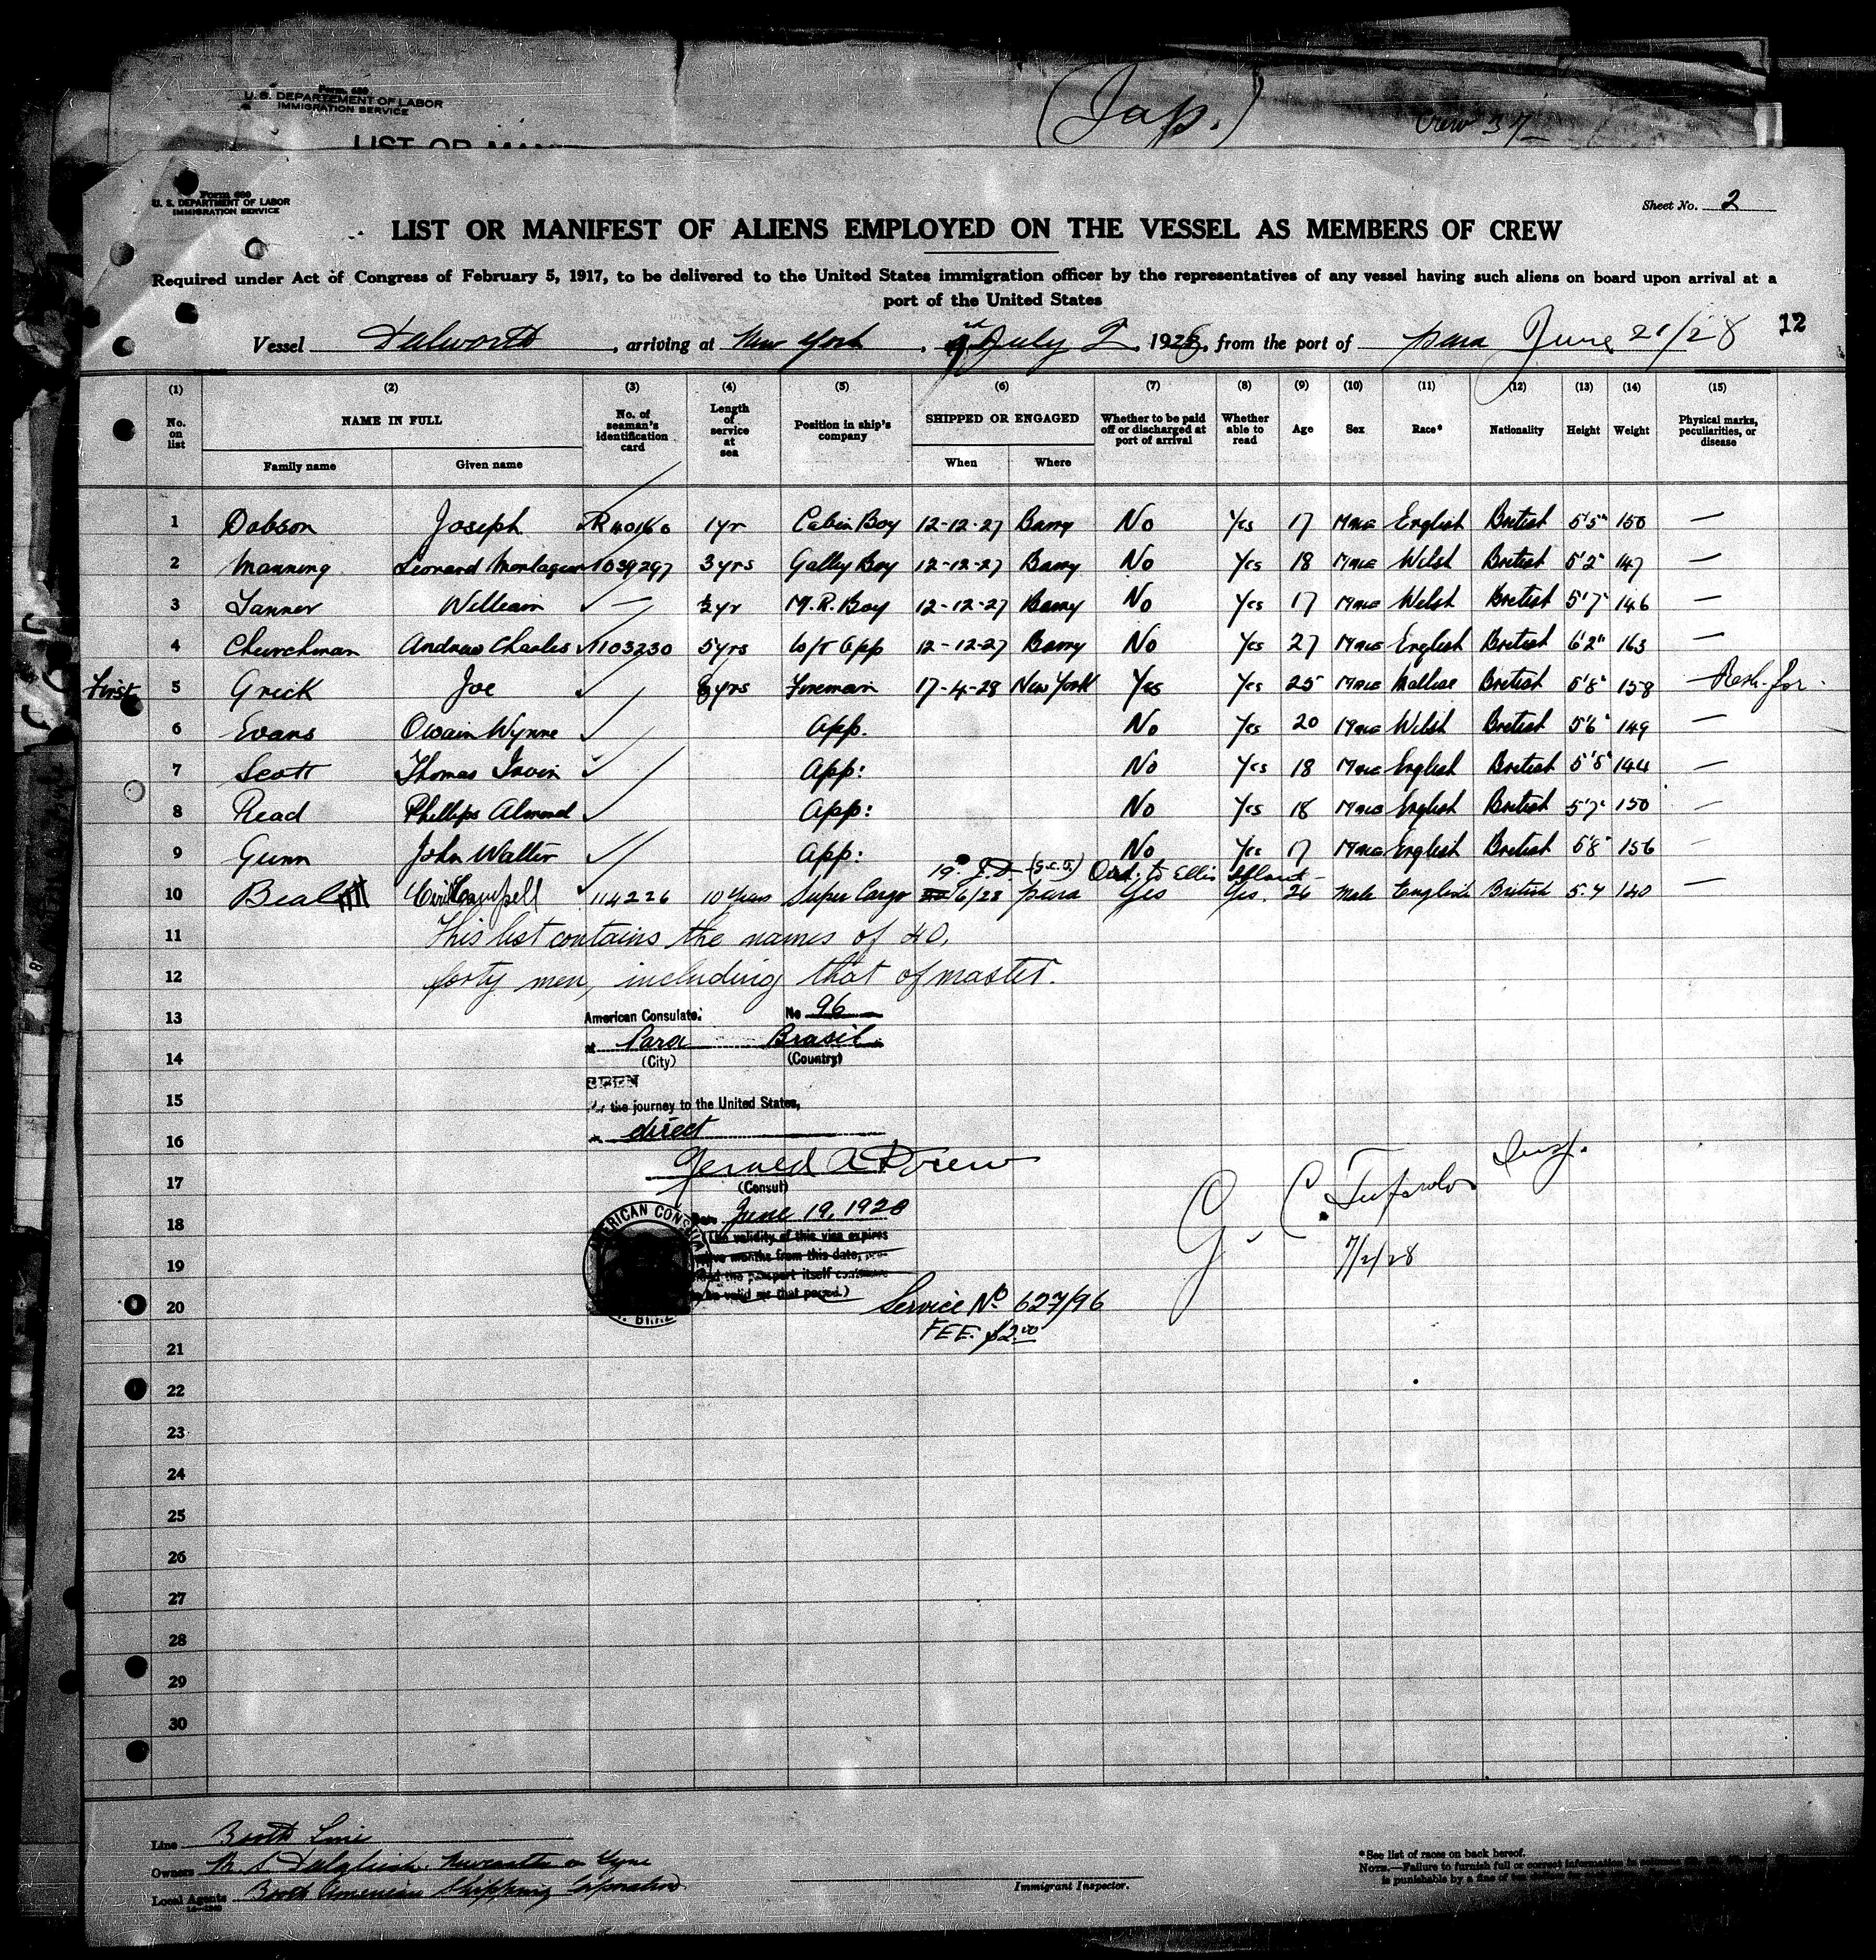 Form 680
U. S. DEPARTEMENT OF LABOR
IMMIGRATION SERVICE
LIST OR MAN
(Jap.)
Crew 37
Form 680
U. S. DEPARTMENT OF LABOR
IMMIGRATION SERVICE
Sheet No. 2
LIST OR MANIFEST OF ALIENS EMPLOYED ON THE VESSEL AS MEMBERS OF CREW
Required under Act of Congress of February 5, 1917, to be delivered to the United States immigration officer by the representatives of any vessel having such aliens on board upon arrival at a
port of the United States
Vessel Dalworth, arriving at New York, July 2nd, 1928, from the port of para June 21/28 12
(1) (2) (3) (4) (5) (6) (7) (8) (9) (10) (11) (12) (13) (14) (15)
No. on list NAME IN FULL Family name Given name No. of seaman's identification card Length of service at sea Position in ship's company SHIPPED OR ENGAGED When Where Whether to be paid off or discharged at port of arrival Whether able to read Age Sex Race* Nationality Height Weight Physical marks, peculiarities, or disease
1 Dobson Joseph R40160 1yr Cabin Boy 12-12-27 Barry No Yes 17 Male English British 5'5" 150 —
2 Manning Leonard Montague 1039297 3yrs Galley Boy 12-12-27 Barry No Yes 18 Male Welsh British 5'2" 147 —
3 Tanner William — ½yr M.R. Boy 12-12-27 Barry No Yes 17 Male Welsh British 5'7" 146 —
4 Churchman Andrew Charles 1103230 5yrs W/T Opp 12-12-27 Barry No Yes 27 Male English British 6'2" 163 —
First 5 Grick Joe yrs Fireman 17-4-28 New York Yes Yes 25 Male Maltese British 5'8" 158
6 Evans Owain Wynne App. No Yes 20 Male Welsh British 5'6" 149 —
7 Scott Thomas Irvin App: No Yes 18 Male English British 5'8" 144 —
8 Read Phillips Almond App: No Yes 18 Male English British 5'7" 150 —
9 Gunn John Walter App: No Yes 17 Male English British 5'8" 156 —
Ord. to Ellis Island
10 Beal Campbell 114226 10 Years Super Cargo 19/6/28 para Yes Yes. 26 Male English British 5.7 140 —
11 This list contains the names of 40,
12 forty men, including that of master.
13 American Consulate. No 96
at Para Brasil
14 (City) (Country)
SEEN
15 the journey to the United States,
16 direct
Insp.
Gerald A Drew
17 (Consul)
G. C.
18 Date June 19, 1928
AMERICAN CONSU
(The validity of this visa expires
7/2/28
19 twelve months from this date, pro-
vided the passport itself continues
to be valid for that period.)
20 Service No 627/96
BRAZ
FEE. $2.00
21
22
23
24
25
26
27
28
29
30
Line Booth Line
Owners R. S. Dalgliesh. Newcastle on Tyne
Local Agents Booth American Shipping Corporation
Immigrant Inspector.
*See list of races on back hereof.
NOTE.—Failure to furnish full or correct information in
is punishable by a fine of ten